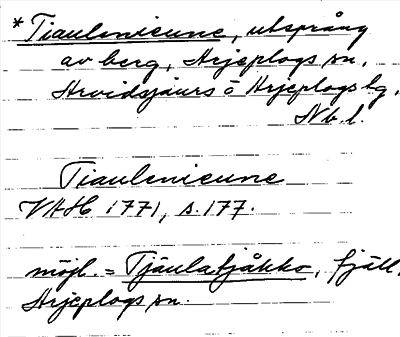 *Tiaulenieune, utsprång
av berg, Arjeplogs sn,
Arvidsjaurs o Arjeplogs tg,
Nb. l.
Tiaulenieune
VAH 1771, s. 177.
möjl. = Tjäulatjåkko, fjäll,
Arjeplogs sn.